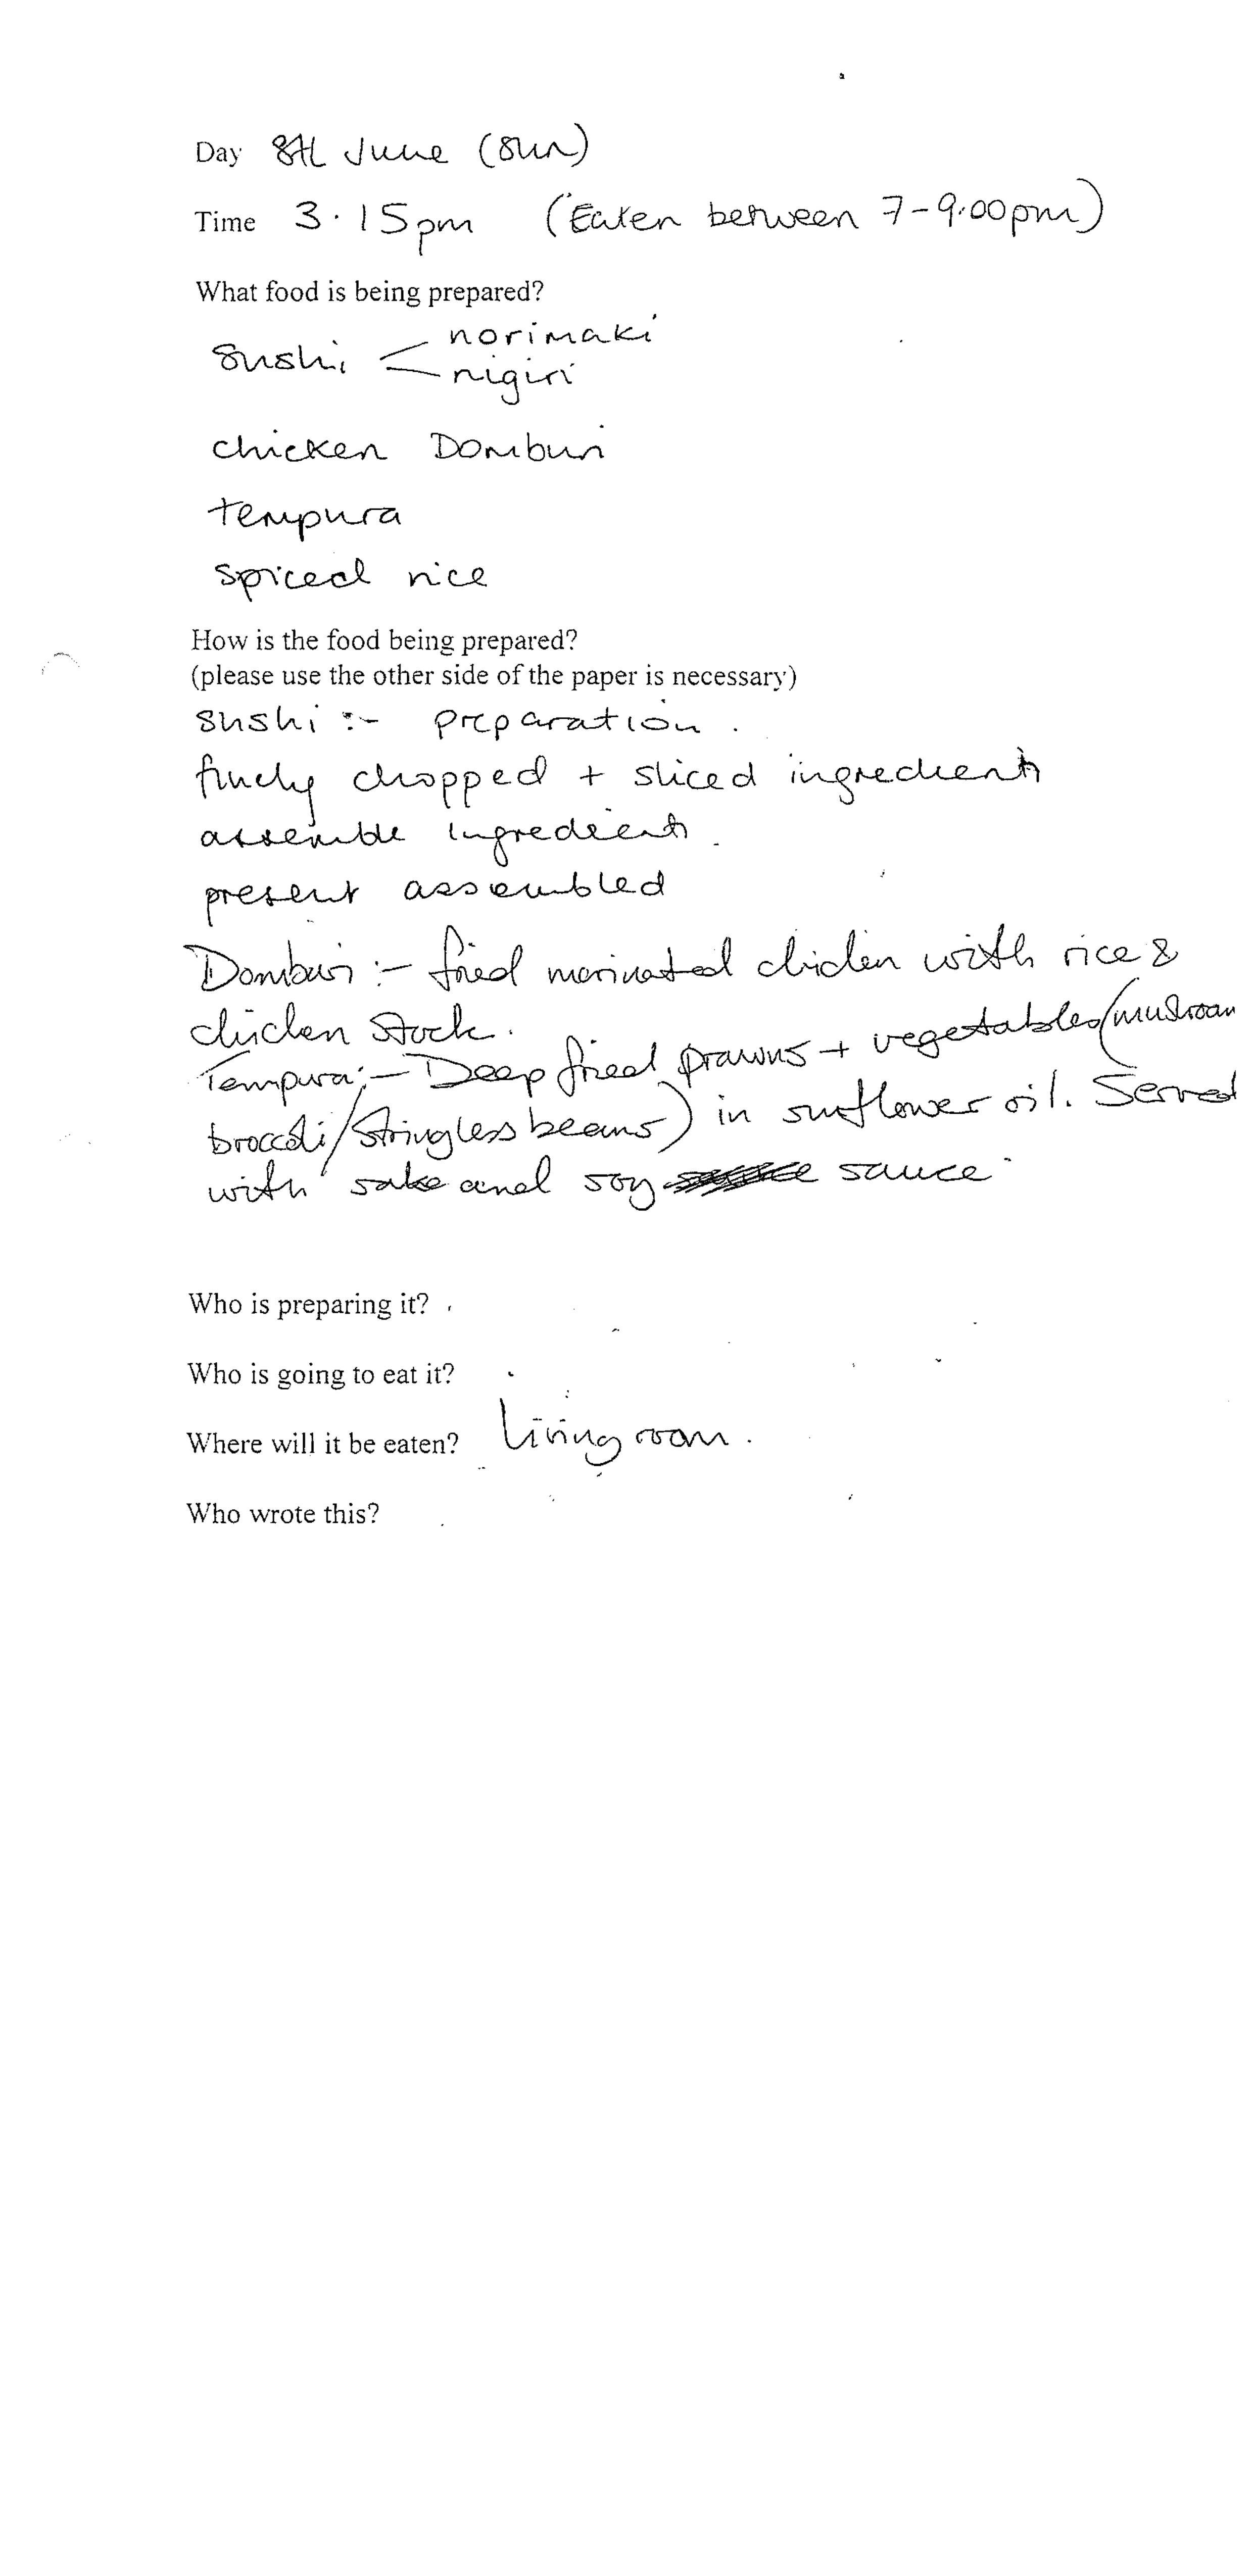 Day 8th June (Sun)
Time 3.15pm (Eaten between 7-9.00pm)
What food is being prepared?
Sushi < norimaki
nigiri
chicken Domburi
tempura
spiced rice
How is the food being prepared?
(please use the other side of the paper is necessary)
sushi :- preparation.
finely chopped + sliced ingredients
assemble ingredients.
present assembled
Domburi :- fried marinated chicken with rice &
chicken stock.
Tempura :- Deep fried prawns + vegetables (mushroom
broccoli/stringless beans) in sunflower oil. Served
with sake and soy sauce
Who is preparing it?
Who is going to eat it?
Where will it be eaten? Living room.
Who wrote this?